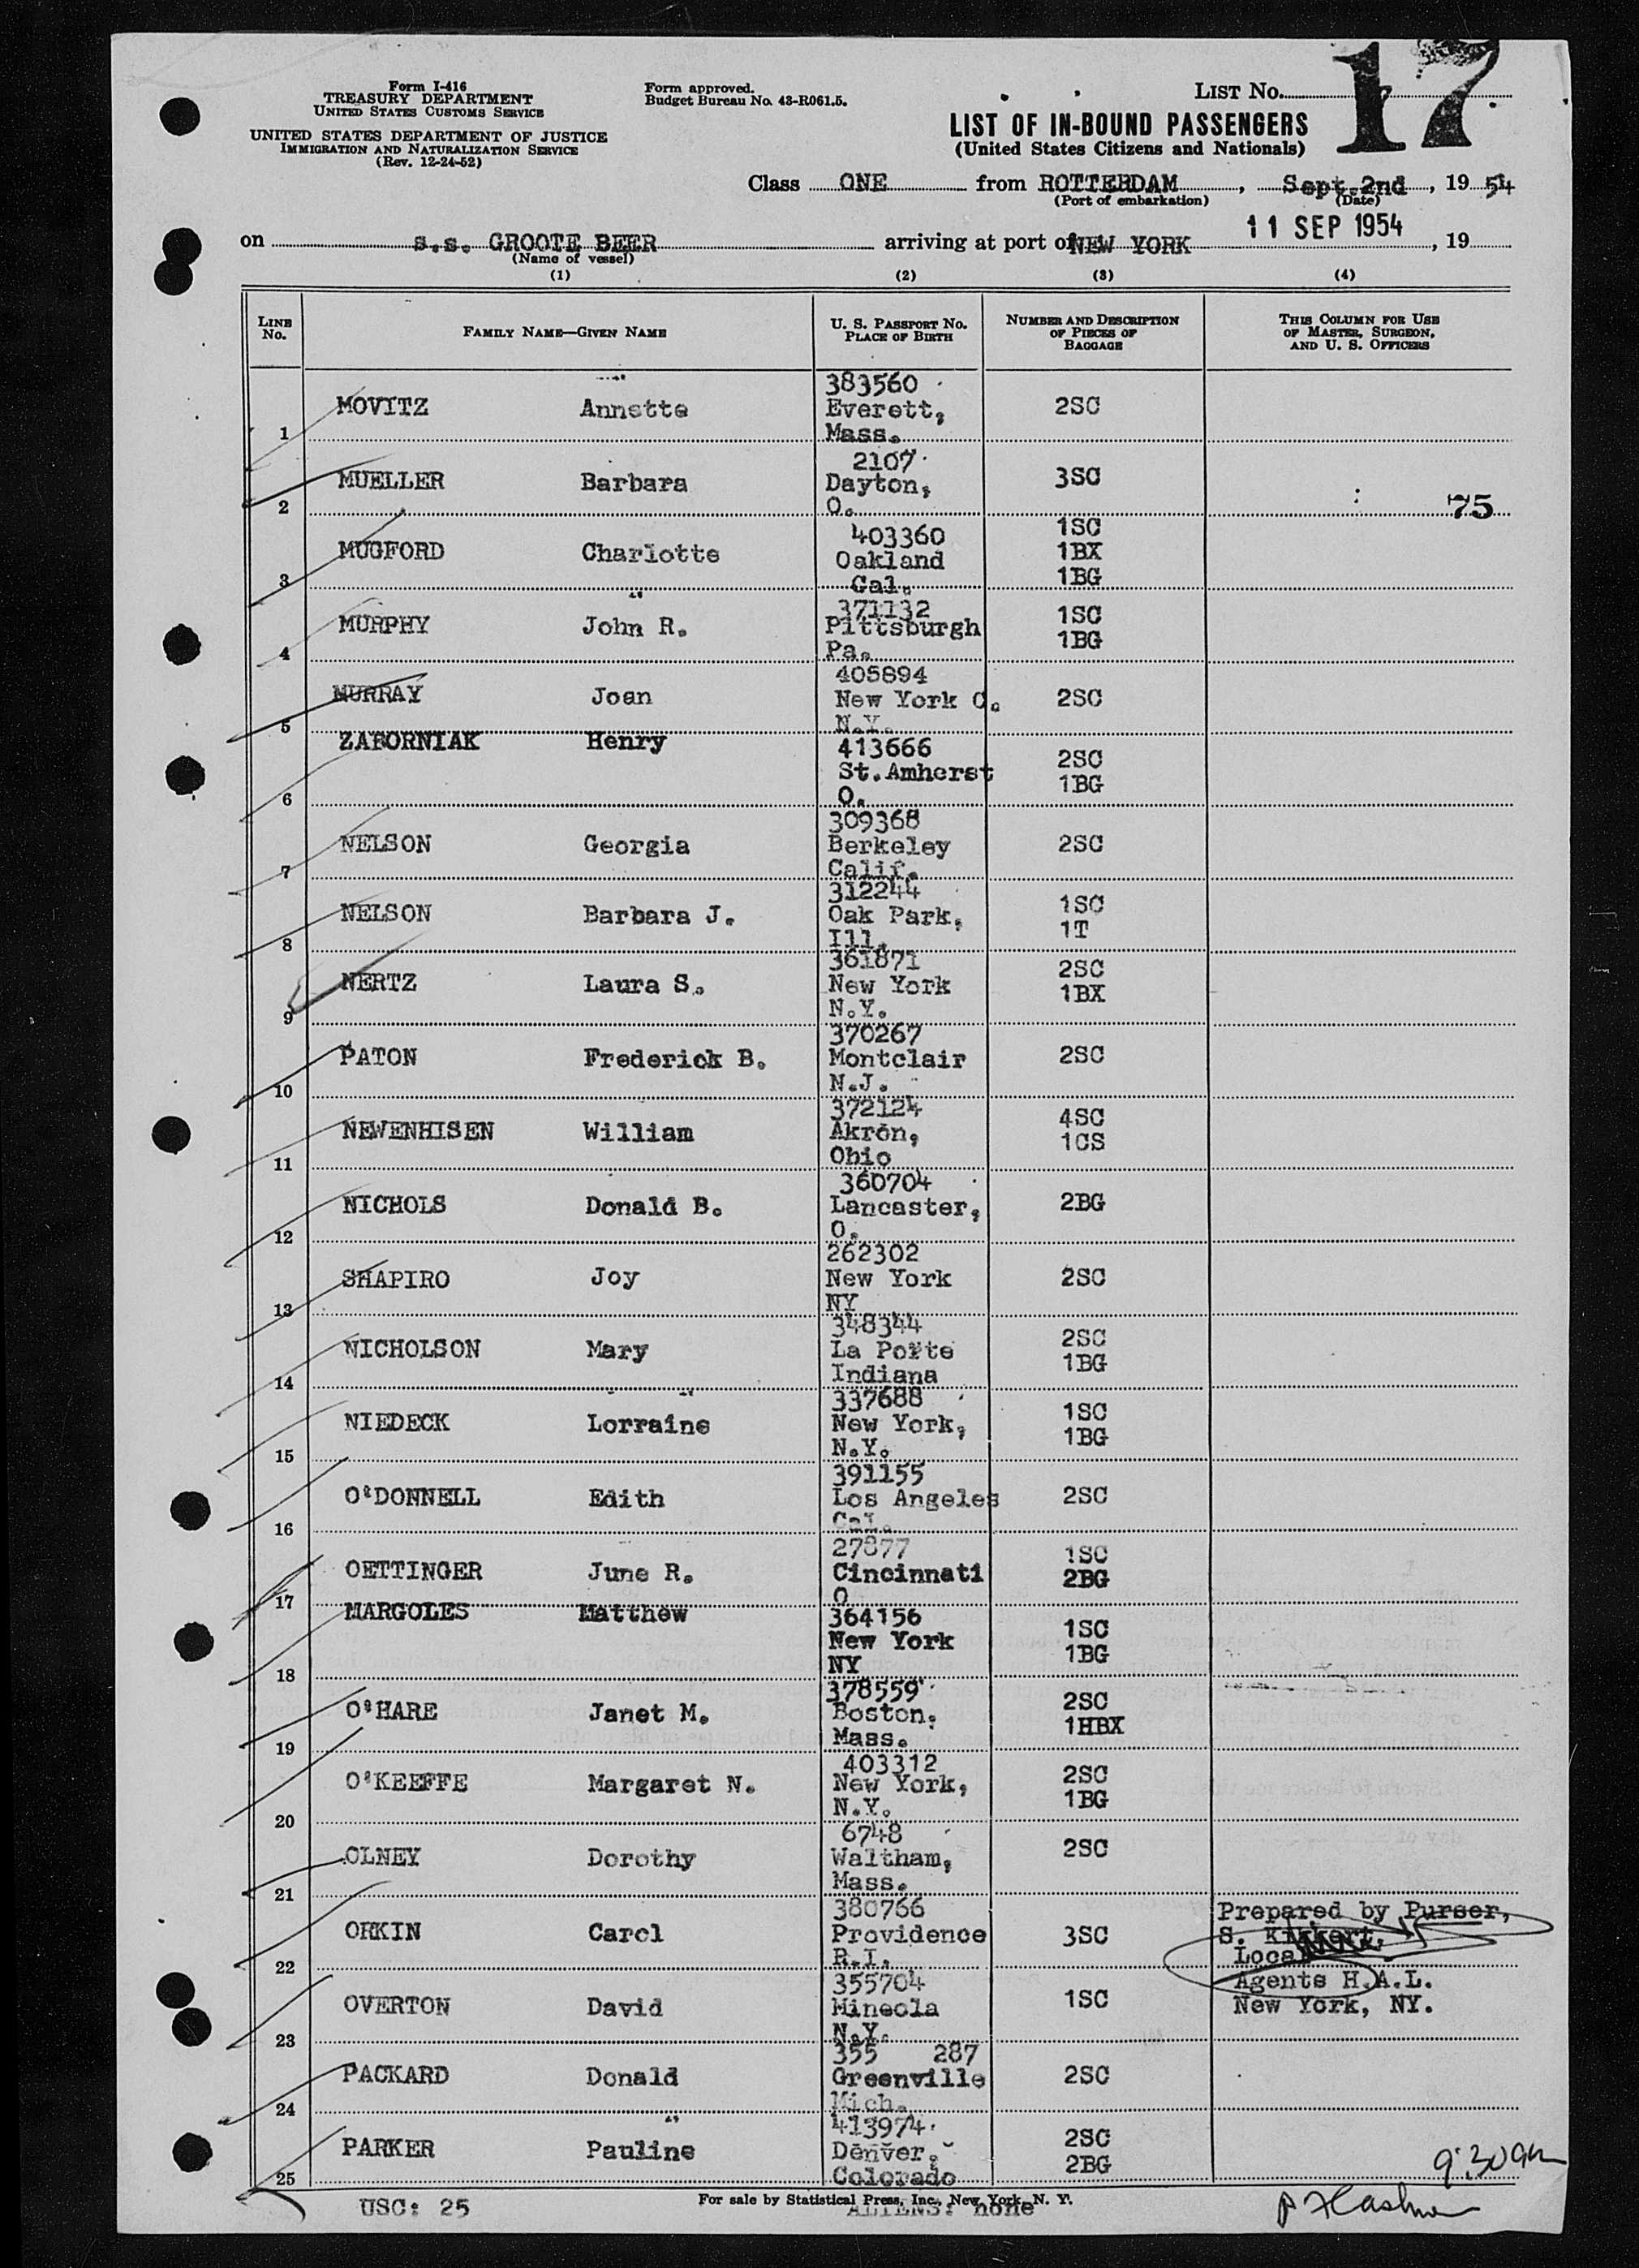 Form I-416
TREASURY DEPARTMENT
UNITED STATES CUSTOMS SERVICE
UNITED STATES DEPARTMENT OF JUSTICE
IMMIGRATION AND NATURALIZATION SERVICE
(Rev. 12-24-52)
Form approved.
Budget Bureau No. 43-R061.5.
LIST No. 17
LIST OF IN-BOUND PASSENGERS
(United States Citizens and Nationals)
Class ONE from ROTTERDAM, Sept. 2nd, 19 54
(Port of embarkation) (Date)
on s.s. GROOTE BEER arriving at port of NEW YORK 11 SEP 1954, 19
(Name of vessel)
(1) (2) (3) (4)
LINE No. FAMILY NAME—GIVEN NAME U. S. PASSPORT No. PLACE OF BIRTH NUMBER AND DESCRIPTION OF PIECES OF BAGGAGE THIS COLUMN FOR USE OF MASTER, SURGEON, AND U. S. OFFICERS
383560
MOVITZ Annette Everett, 2SC
1 Mass.
2107
MUELLER Barbara Dayton, 3SC
2 O. 75
403360 1SC
MUGFORD Charlotte Oakland 1BX
3 Cal. 1BG
371132 1SC
MURPHY John R. Pittsburgh 1BG
4 Pa.
405894
MURRAY Joan New York C. 2SC
5 N.Y.
ZABORNIAK Henry 413666 2SC
St.Amherst 1BG
6 O.
309368
NELSON Georgia Berkeley 2SC
7 Calif.
312244 1SC
NELSON Barbara J. Oak Park, 1T
8 Ill.
361871 2SC
NERTZ Laura S. New York 1BX
9 N.Y.
370267
PATON Frederick B. Montclair 2SC
10 N.J.
372124 4SC
NEWENHISEN William Akron, 1CS
11 Ohio
360704
NICHOLS Donald B. Lancaster, 2BG
12 O.
262302
SHAPIRO Joy New York 2SC
13 NY
348344 2SC
NICHOLSON Mary La Porte 1BG
14 Indiana
337688 1SC
NIEDECK Lorraine New York, 1BG
15 N.Y.
391155
O'DONNELL Edith Los Angeles 2SC
16 Cal.
27877 1SC
OETTINGER June R. Cincinnati 2BG
17 O
MARGOLES Matthew 364156 1SC
New York 1BG
18 NY
378559 2SC
O'HARE Janet M. Boston, 1HBX
19 Mass.
403312 2SC
O'KEEFFE Margaret N. New York, 1BG
20 N.Y.
6748
OLNEY Dorothy Waltham, 2SC
21 Mass.
380766 Prepared by Purser,
ORKIN Carol Providence 3SC S.
22 R.I. Local
355704 Agents H.A.L.
OVERTON David Mineola 1SC New York, NY.
23 N.Y.
355 287
PACKARD Donald Greenville 2SC
24 Mich.
413974
PARKER Pauline Denver, 2SC
25 Colorado 2BG 9:30am
USC: 25 For sale by Statistical Press, Inc., New York, N. Y.
ALIENS: none